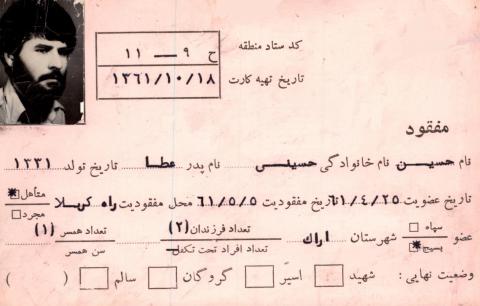 کد ستاد منطقه ح ۹ — ۱۱
تاریخ تهیه کارت ۱۳۶۱/۱۰/۱۸
مفقود
نام حسین نام خانوادگی حسینی نام پدر عطا تاریخ تولد ۱۳۳۱
تاریخ عضویت ۶۱/۴/۲۵ تاریخ مفقودیت ۶۱/۵/۵ محل مفقودیت راه کربلا متأهل مجرد
عضو سپاه بسیج شهرستان اراک تعداد فرزندان (۲) تعداد همسر (۱)
تعداد افراد تحت تکفل سن همسر
وضعیت نهایی: شهید اسیر گروگان سالم ( )